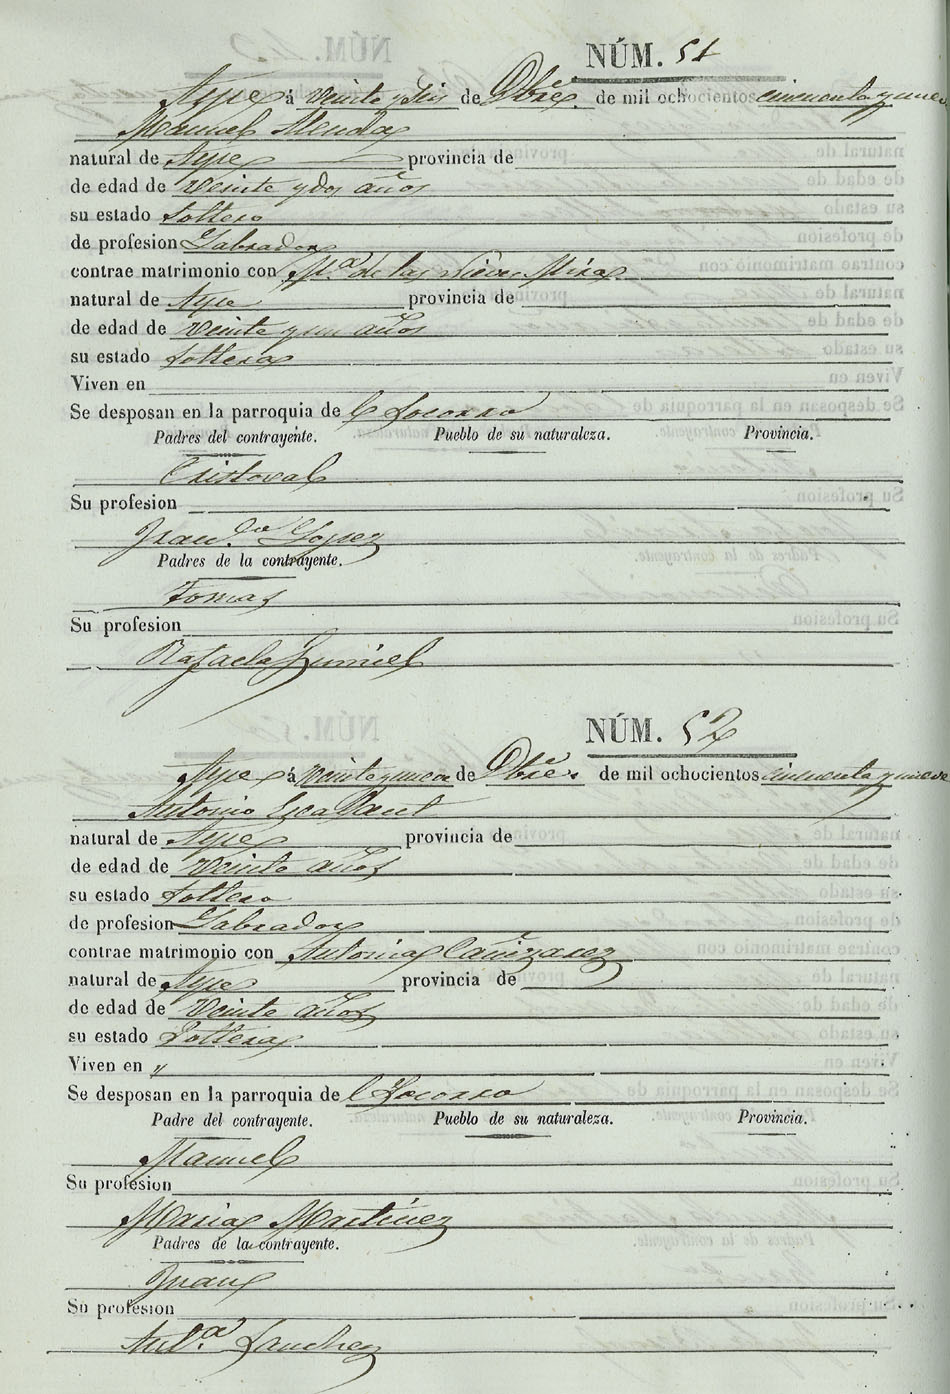 NÚM. 51
Aspe á veinte y seis de Dbre de mil ochocientos cincuenta y nueve
Manuel
natural de Aspe provincia de
de edad de veinte y dos años
su estado soltero
de profesion Labrador
contrae matrimonio con M.ª de las Nieves Mira
natural de Aspe provincia de
de edad de veinte y un años
su estado soltera
Viven en
Se desposan en la parroquia de l Socorro
Padres del contrayente. Pueblo de su naturaleza. Provincia.
Cristoval
Su profesion
Fran.ca Lopez
Padres de la contrayente.
Tomas
Su profesion
Rafaela
NÚM. 52
Aspe á veinte y nueve de Dbre de mil ochocientos cincuenta y nueve
Antonio Escallant
natural de Aspe provincia de
de edad de veinte años
su estado soltero
de profesion Labrador
contrae matrimonio con Antonia Cañizarez
natural de Aspe provincia de
de edad de veinte años
su estado Soltera
Viven en "
Se desposan en la parroquia de l Socorro
Padre del contrayente. Pueblo de su naturaleza. Provincia.
Manuel
Su profesion
Maria Martinez
Padres de la contrayente.
Juan
Su profesion
Ant.ª Sanchez